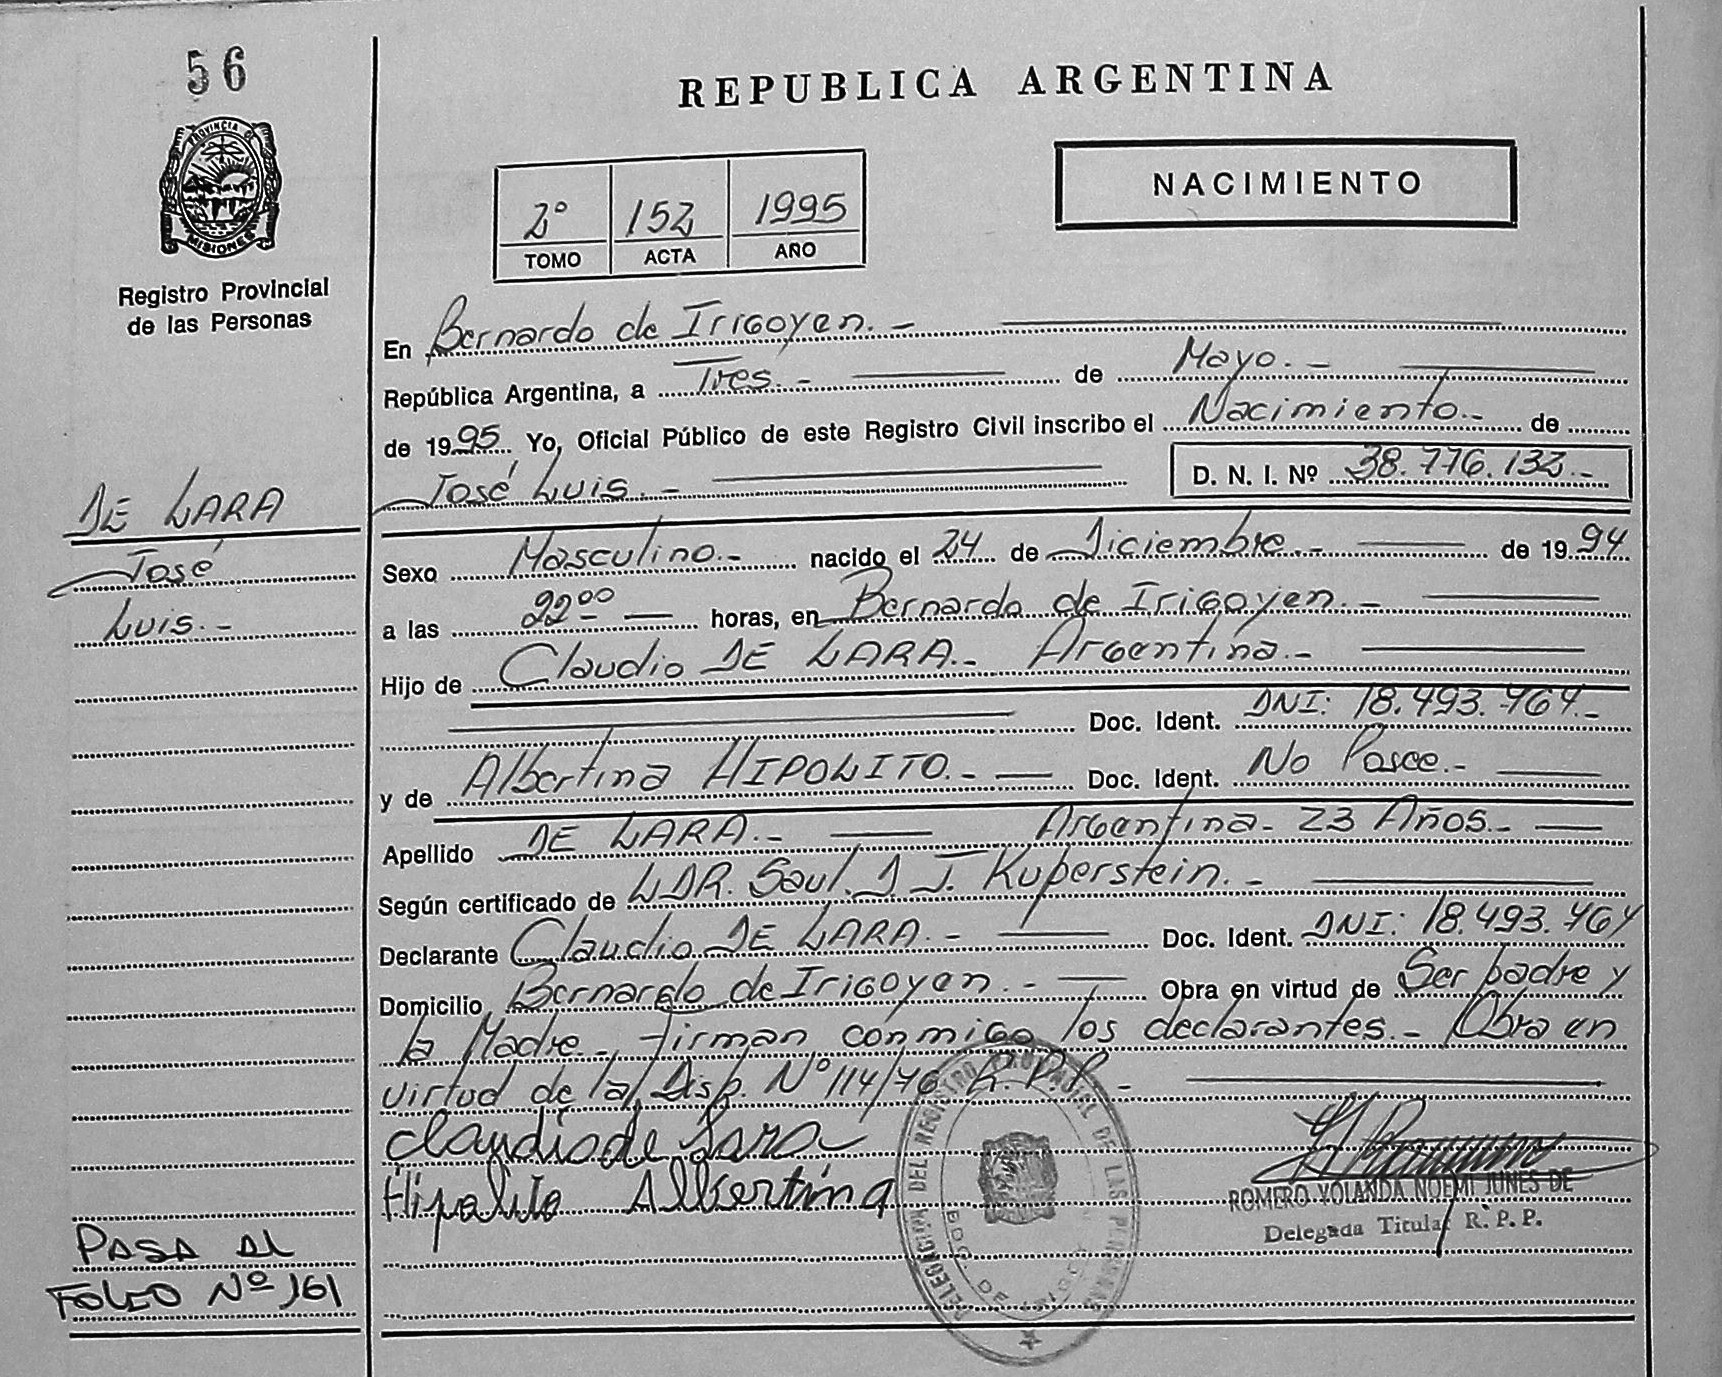 56
PROVINCIA DE
MISIONES
Registro Provincial
de las Personas
REPUBLICA ARGENTINA
NACIMIENTO
2º 152 1995
TOMO ACTA AÑO
En Bernardo de Irigoyen.-
República Argentina, a Tres.- de Mayo.-
de 1995 Yo, Oficial Público de este Registro Civil inscribo el Nacimiento.- de
José Luis.- D. N. I. Nº 38.776.132.-
DE LARA
José
Luis.-
Sexo Masculino.- nacido el 24 de Diciembre.- de 1994
a las 22ºº horas, en Bernardo de Irigoyen.-
Hijo de Claudio DE LARA.- Argentina.-
Doc. Ident. DNI: 18.493.464.-
y de Albertina HIPOLITO.- Doc. Ident. No Posee.-
Apellido DE LARA.- Argentina- 23 Años.-
Según certificado de LDR. Saul. D J. Kuperstein.-
Declarante Claudio DE LARA.- Doc. Ident. DNI: 18.493.464
Domicilio Bernardo de Irigoyen.- Obra en virtud de Ser padre y
la Madre.- firman conmigo los declarantes.- Obra en
virtud de la Disp. Nº 114/76 R.P.P.-
claudio de Lara
Hipolito Albertina
ROMERO YOLANDA NOEMI JUNES DE
Delegada Titular R. P. P.
DELEGACION DEL REGISTRO PROVINCIAL DE LAS PERSONAS
BDO. DE IRIGOYEN
PASA AL
FOLIO Nº 161